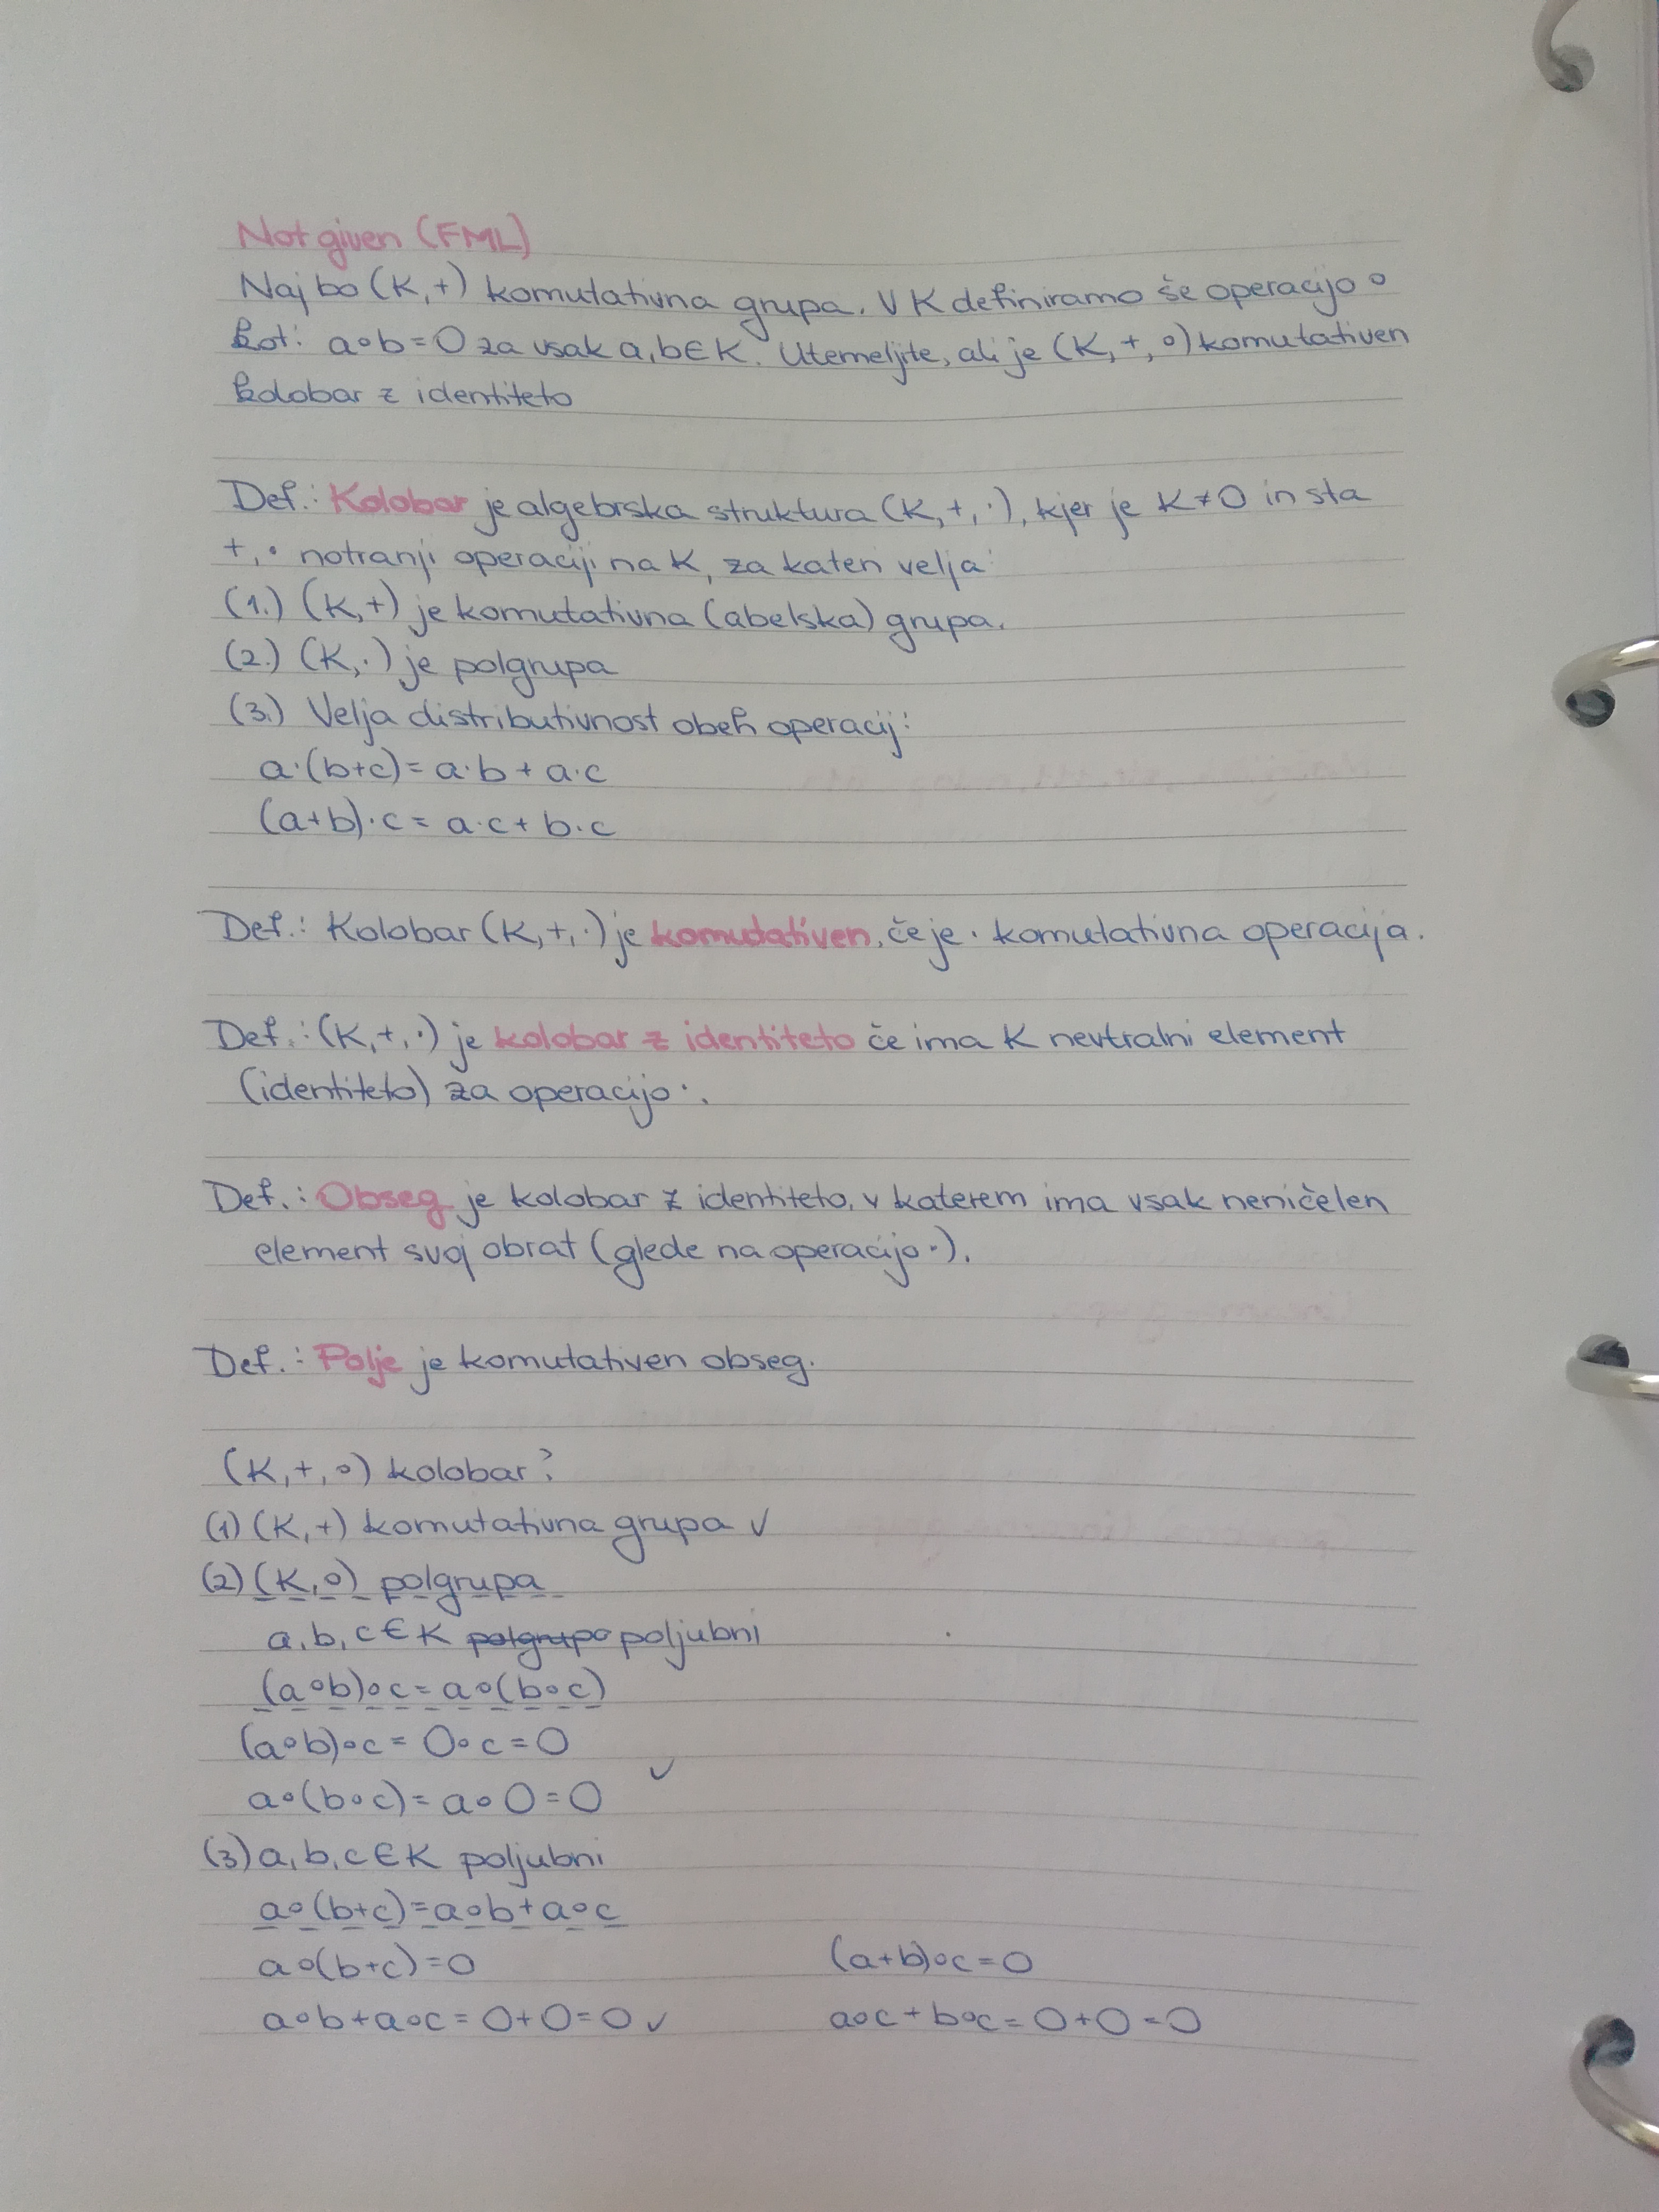 Not given (FML)
Naj bo (K,+) komutativna grupa. V K definiramo še operacijo ∘
kot: a∘b=0 za vsak a,b∈K. Utemeljite, ali je (K,+,∘) komutativen
kolobar z identiteto
Def.: Kolobar je algebrska struktura (K,+,·), kjer je K≠0 in sta
+,· notranji operaciji na K, za kateri velja:
(1.) (K,+) je komutativna (abelska) grupa.
(2.) (K,·) je polgrupa
(3.) Velja distributivnost obeh operacij:
a·(b+c)=a·b+a·c
(a+b)·c=a·c+b·c
Def.: Kolobar (K,+,·) je komutativen, če je · komutativna operacija.
Def.: (K,+,·) je kolobar z identiteto če ima K nevtralni element
(identiteto) za operacijo ·.
Def.: Obseg je kolobar z identiteto, v katerem ima vsak neničelen
element svoj obrat (glede na operacijo ·).
Def.: Polje je komutativen obseg.
(K,+,∘) kolobar?
(1) (K,+) komutativna grupa ✓
(2) (K,∘) polgrupa
a,b,c∈K polgrupa poljubni
(a∘b)∘c=a∘(b∘c)
(a∘b)∘c=0∘c=0
✓
a∘(b∘c)=a∘0=0
(3) a,b,c∈K poljubni
a∘(b+c)=a∘b+a∘c
a∘(b+c)=0 (a+b)∘c=0
a∘b+a∘c=0+0=0 ✓ a∘c+b∘c=0+0=0